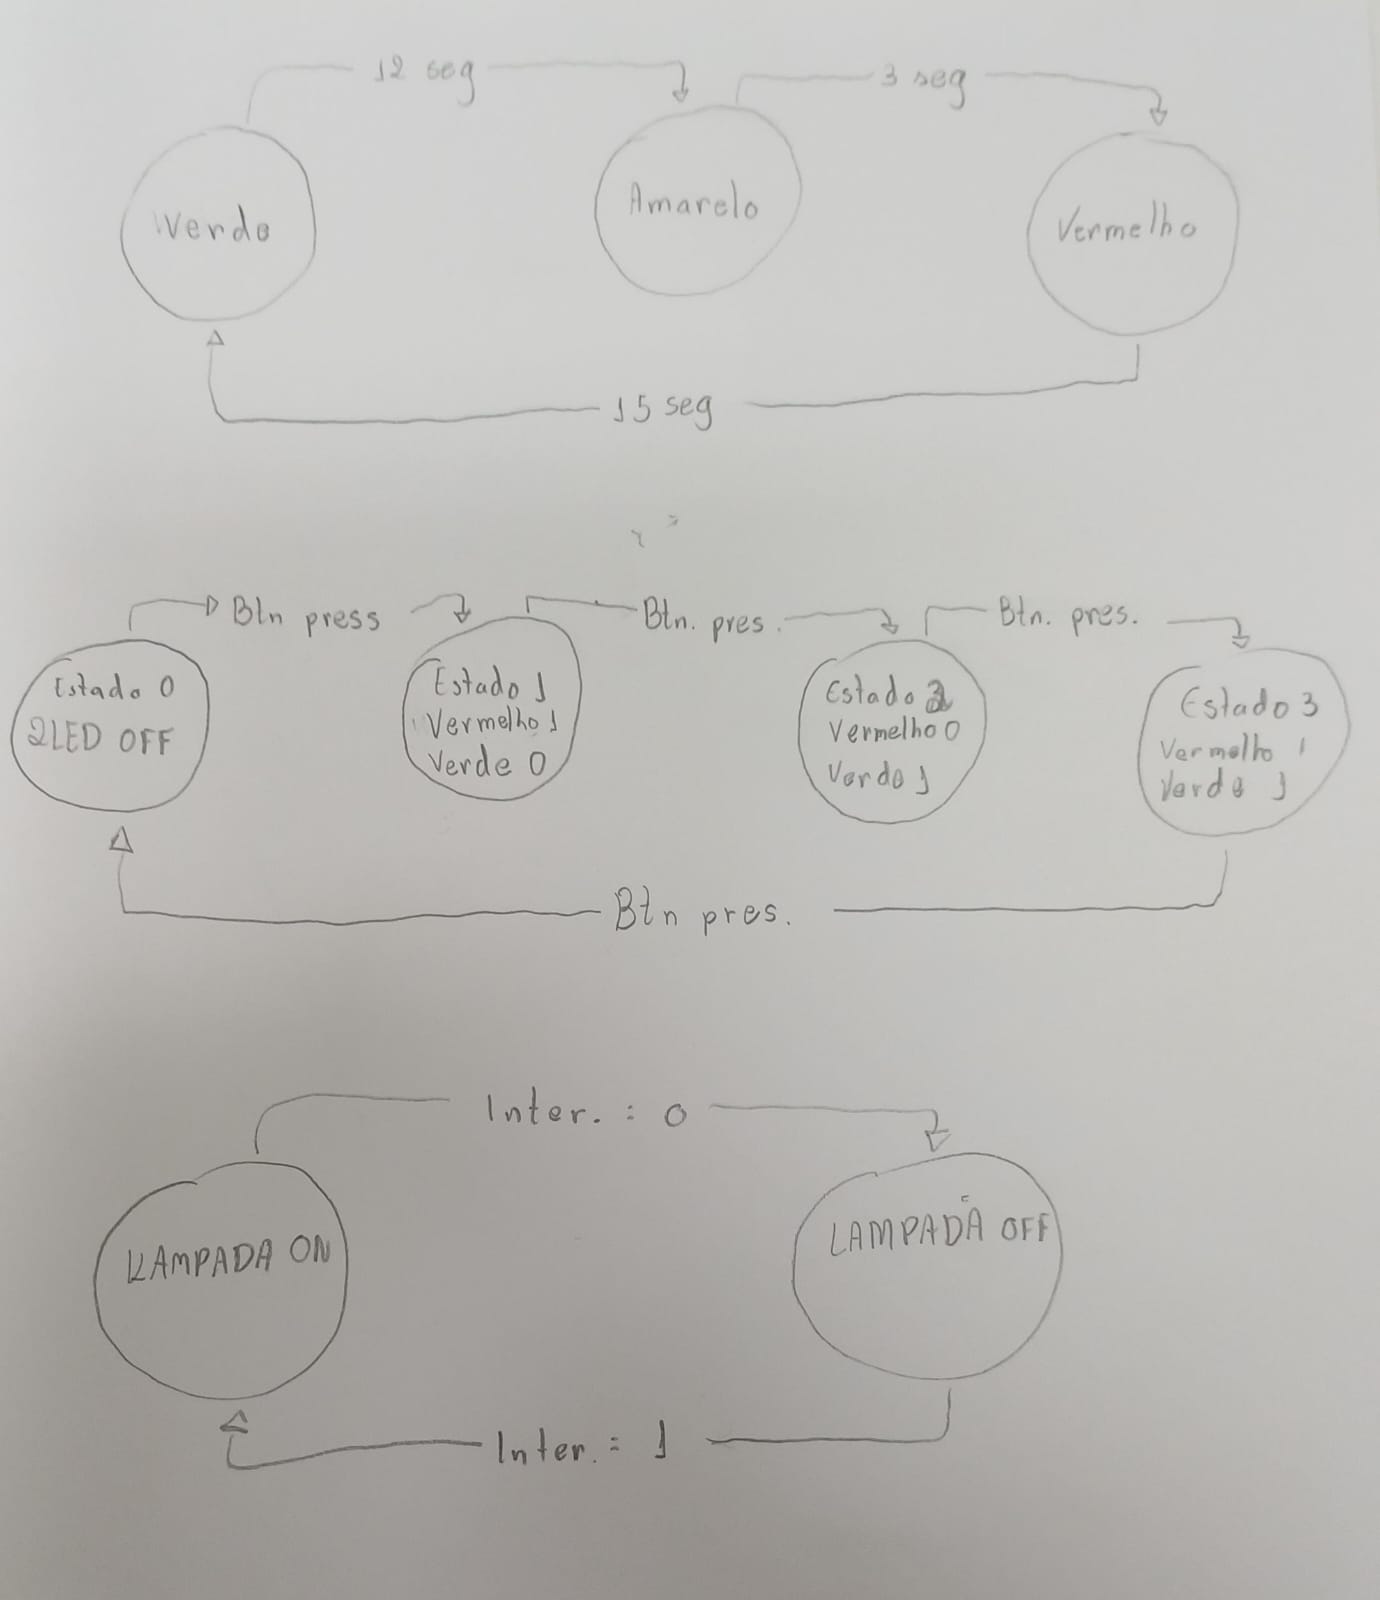 12 seg
3 seg
Verde
Amarelo
Vermelho
15 seg
Btn press
Btn. pres.
Btn. pres.
Estado 0
2LED OFF
Estado 1
Vermelho 1
Verde 0
Estado 2
Vermelho 0
Verde 1
Estado 3
Vermelho 1
Verde 1
Btn pres.
Inter. : 0
LAMPADA ON
LAMPADA OFF
Inter. = 1